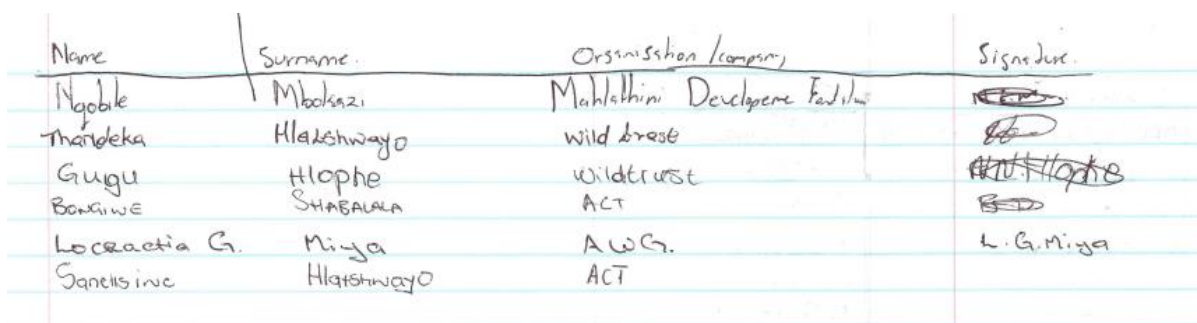 Name Surname. Organisation /company Signature.
Ngobile Mbokazi Mahlathini Developeme
Thandeka Hlatshwayo Wild trust
Gugu Hlophe Wildtrust H.N. Hlophe
BONGIWE SHABALALA ACT
Locractia G. Miya AWG. L.G.Miya
Sanelisiwe Hlatshwayo ACT